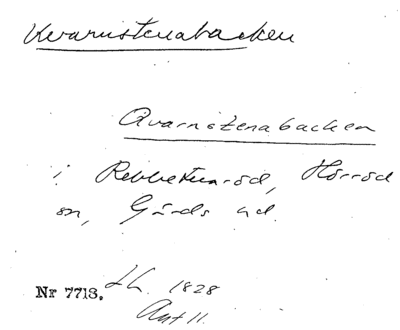 Kvarnstenabacken
Qvarnstenabacken
i Rebbetuaröd, Hörröd
sn, Gärds hd.
Nr 7713. LL. 1828
Akt 11.